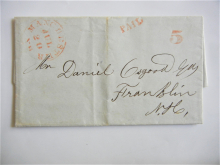 PAID
5
Mr. Daniel Osgood Esq
Franklin
N.H.